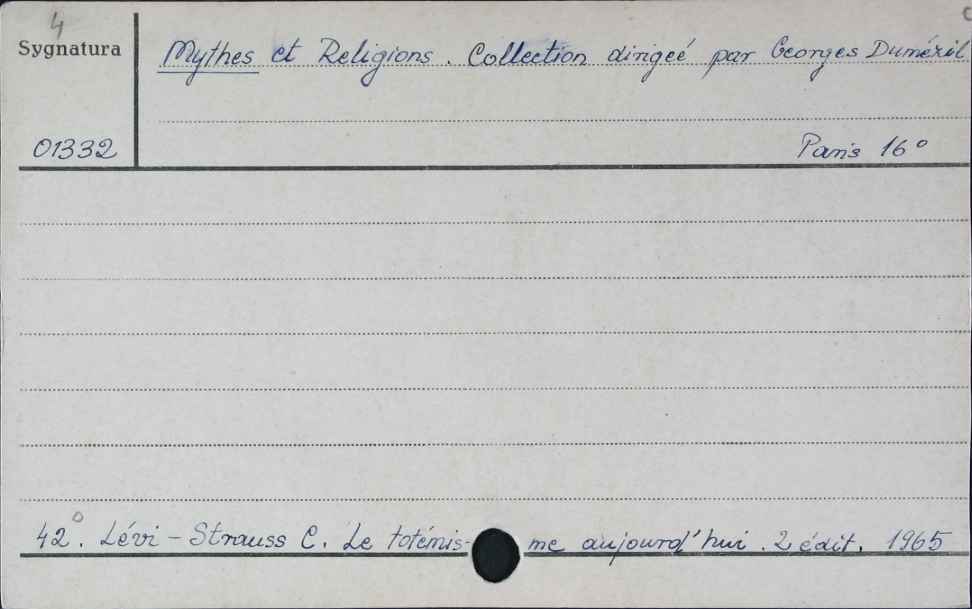 4
Sygnatura
Mythes et Religions. Collection dirigeé par Georges Dumézil.
01332
Paris 16°
42°. Lévi-Strauss C. Le totémis- me aujourd'hui. 2 édit. 1965